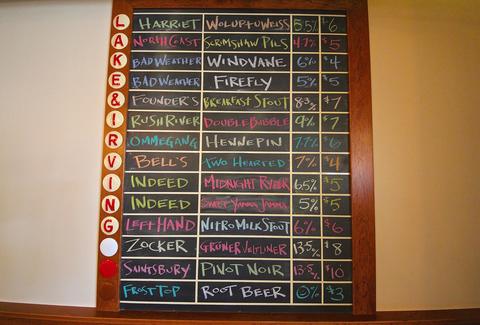 LAKE & IRVING
HARRIET WOLUPTUWEISS 5.5% $6
NORTH COAST SCRIMSHAW PILS 4.7% $5
BAD WEATHER WINDVANE 6% $4
BAD WEATHER FIREFLY 5% $5
FOUNDER'S BREAKFAST STOUT 8.3% $7
RUSH RIVER DOUBLE BUBBLE 9% $7
OMMEGANG HENNEPIN 7.7% $6
BELL'S TWO HEARTED 7% $4
INDEED MIDNIGHT RYDER 6.5% $5
INDEED SWEET YAMMA JAMMA 5% $5
LEFT HAND NITRO MILK STOUT 6% $6
ZOCKER GRÜNER VELTLINER 13.5% $8
SAINTSBURY PINOT NOIR 13.5% $10
FROST TOP ROOT BEER 0% $3